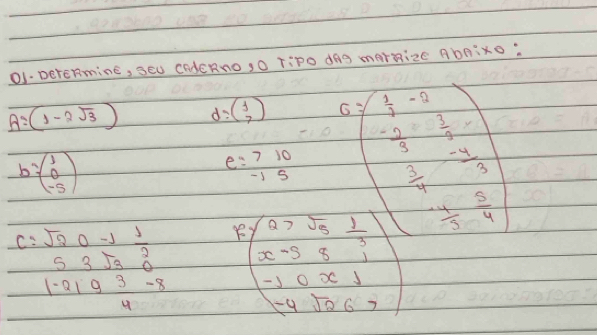 01-Determine, seu caderno, o tipo das matrize abaixo:
A=(1 -2 √3)
d=(1
7)
G=(1/3 -2
2/3 3/3
3/4 -4/3
-4/3 5/4)
b=(1
0
-5)
e= 7 10
-1 5
C= √2 0 -1 1/2
5 3 √3 0
1-21 9 3/4 -8
F=(2 7 √5 1/3
x -3 8 1
-1 0 x 1
-4 √2 6 7)